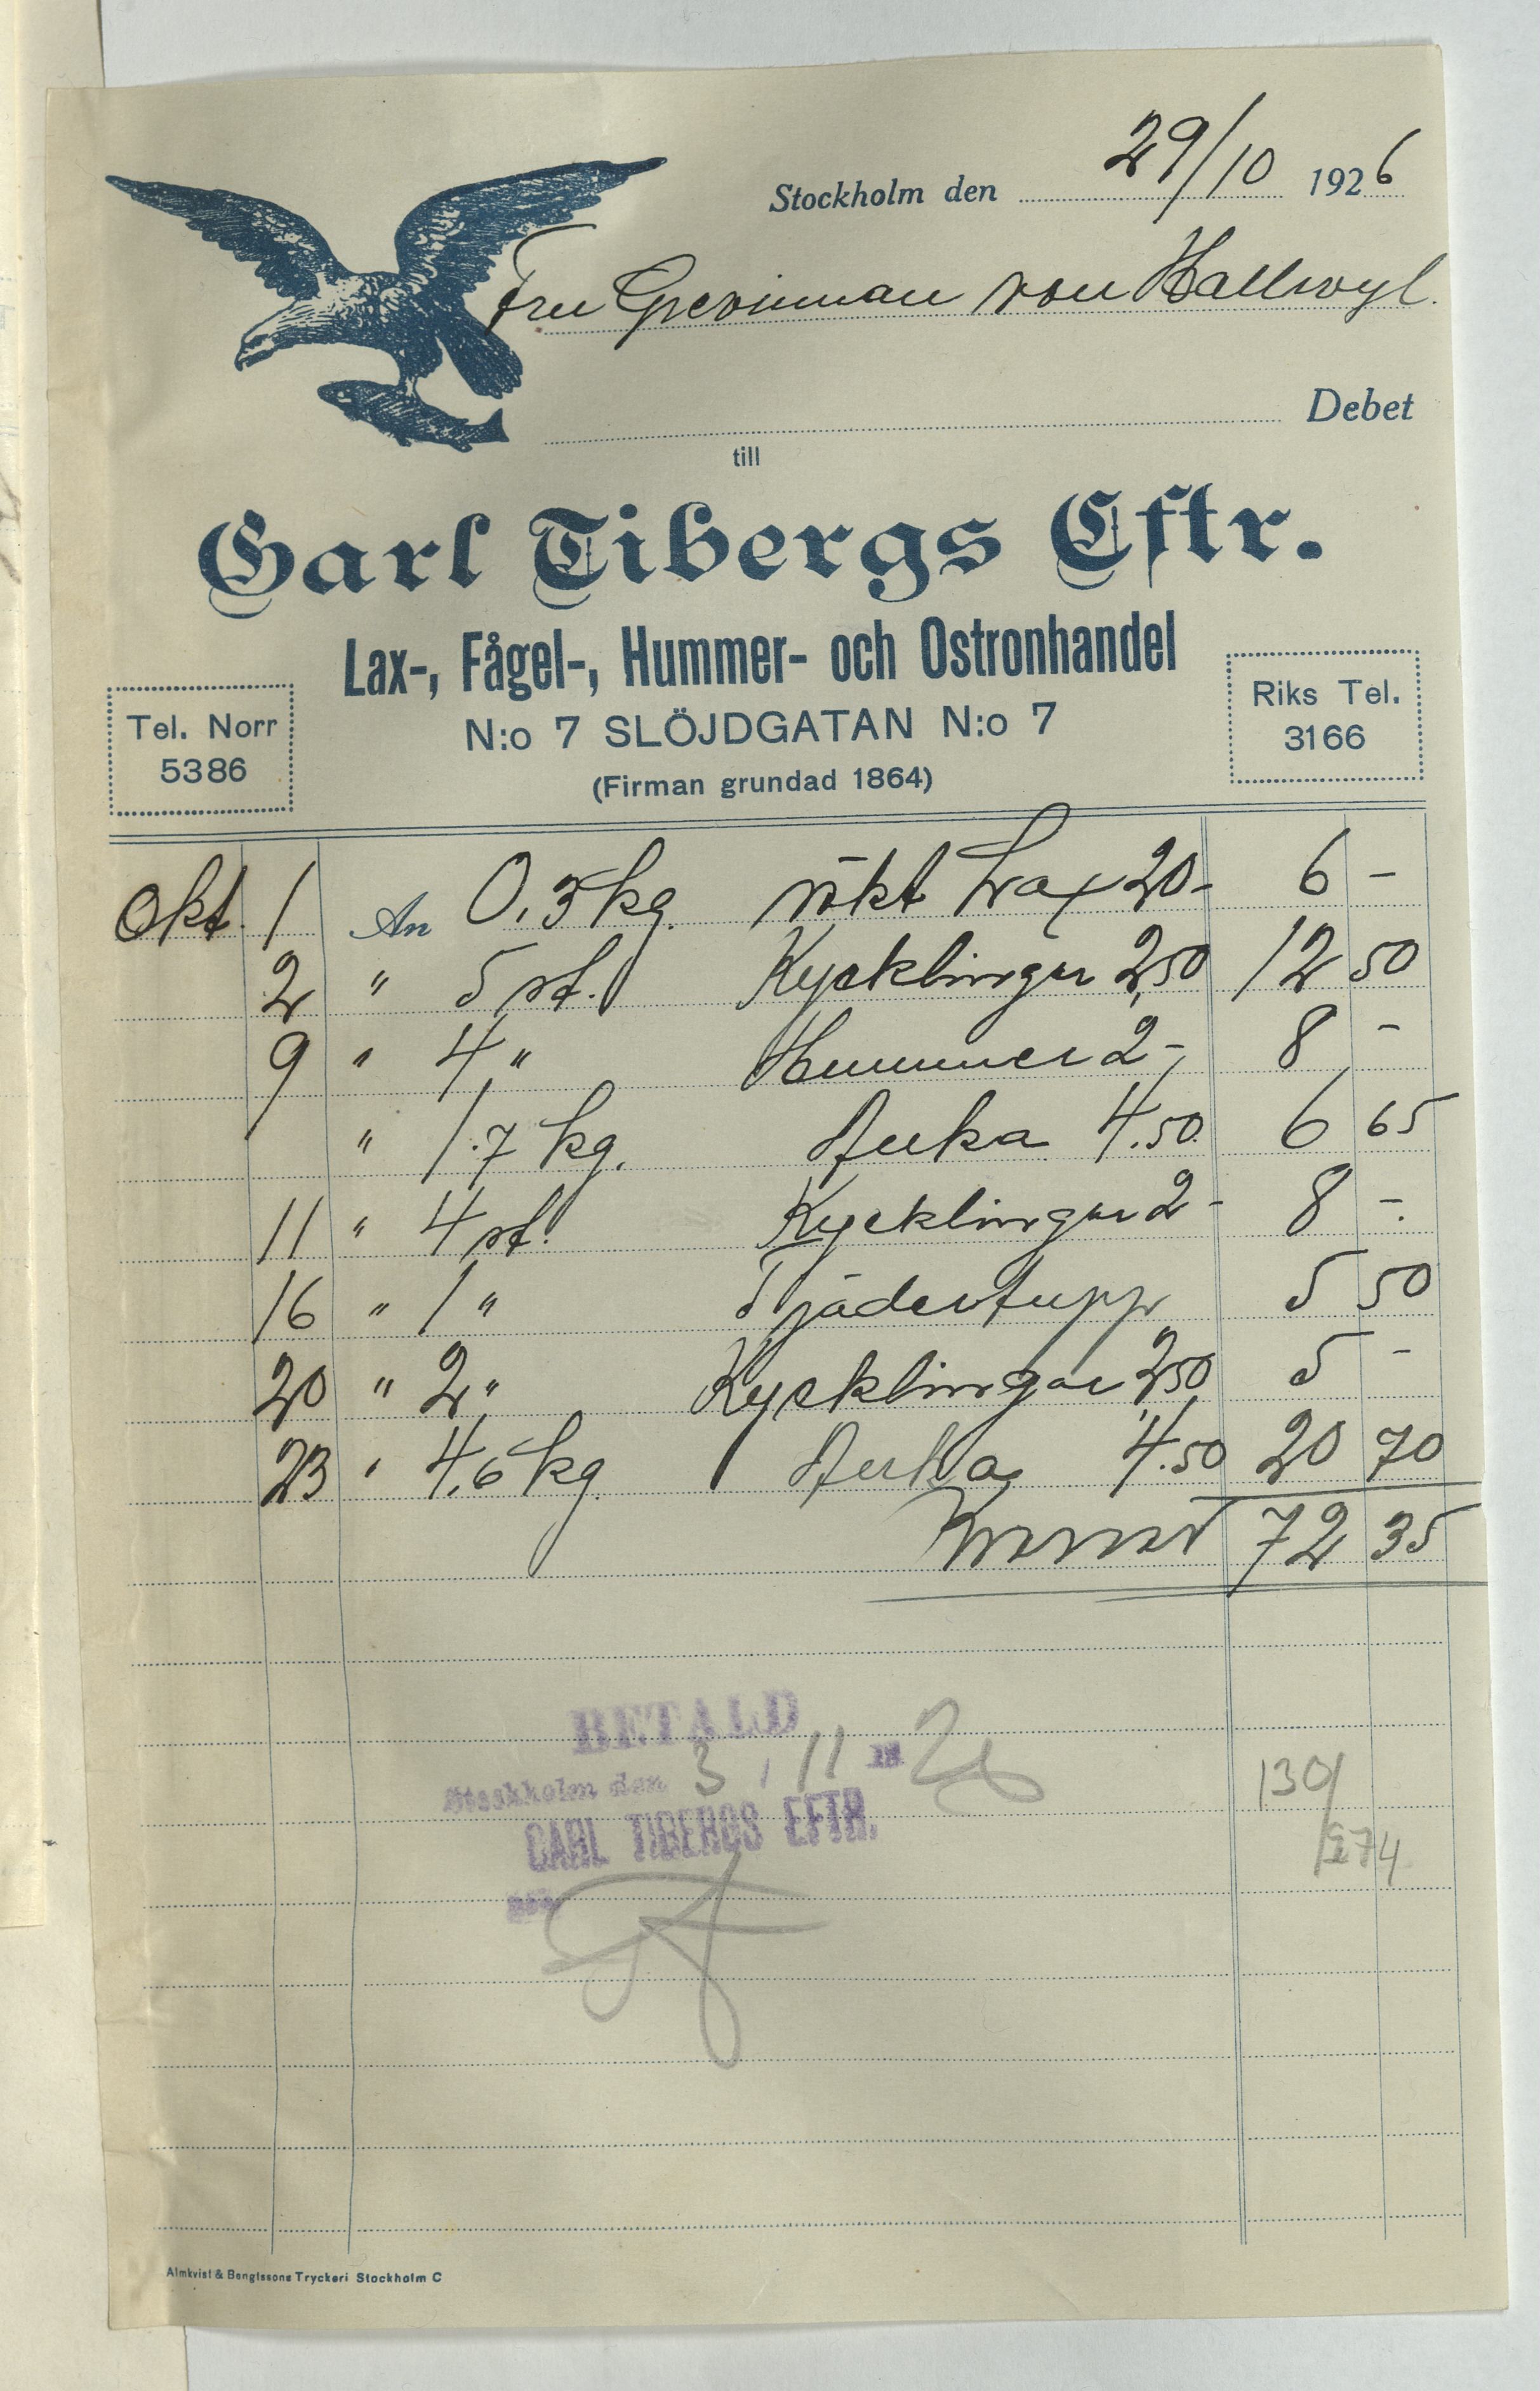 Stockholm den 29/10 1926
Fru Grevinnan von Hallwyl.
Debet
till
Carl Tibergs Eftr.
Lax-, Fågel-, Hummer- och Ostronhandel
Tel. Norr
5386
N:o 7 SLÖJDGATAN N:o 7
(Firman grundad 1864)
Riks Tel.
3166
Okt. 1 An 0,3 kg. rökt Lax 20- 6 -
2 " 5 st. Kycklingar 2,50 12 50
9 " 4 " Hummer 2- 8 -
" 1.7 kg. 4.50 6 65
11 " 4 st. Kycklingar 2- 8 -.
16 " 1 " Tjädertupp 5 50
20 " 2 " Kycklingar 2,50 5 -
23 " 4,6 kg. 4.50 20 70
Kronor 72 35
BETALD
Stockholm den 3/11 19 26
CARL TIBERGS EFTR.
130/
274
Almkvist & Bengtssons Tryckeri Stockholm C